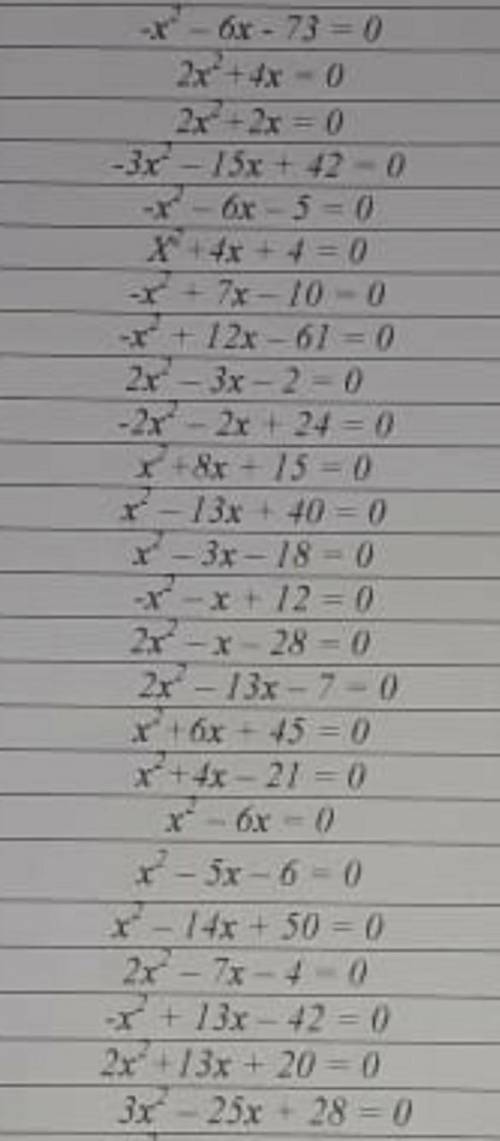 -x² – 6x - 73 = 0
2x²+4x = 0
2x²+2x = 0
-3x² – 15x + 42 = 0
-x² – 6x – 5 = 0
X²+4x + 4 = 0
-x² + 7x – 10 = 0
-x² + 12x – 61 = 0
2x² – 3x – 2 = 0
-2x² – 2x + 24 = 0
x²+8x + 15 = 0
x² – 13x + 40 = 0
x² – 3x – 18 = 0
-x² – x + 12 = 0
2x² – x – 28 = 0
2x² – 13x – 7 = 0
x²+6x + 45 = 0
x²+4x – 21 = 0
x² – 6x = 0
x² – 5x – 6 = 0
x² – 14x + 50 = 0
2x² – 7x – 4 = 0
-x² + 13x – 42 = 0
2x²+13x + 20 = 0
3x² – 25x + 28 = 0